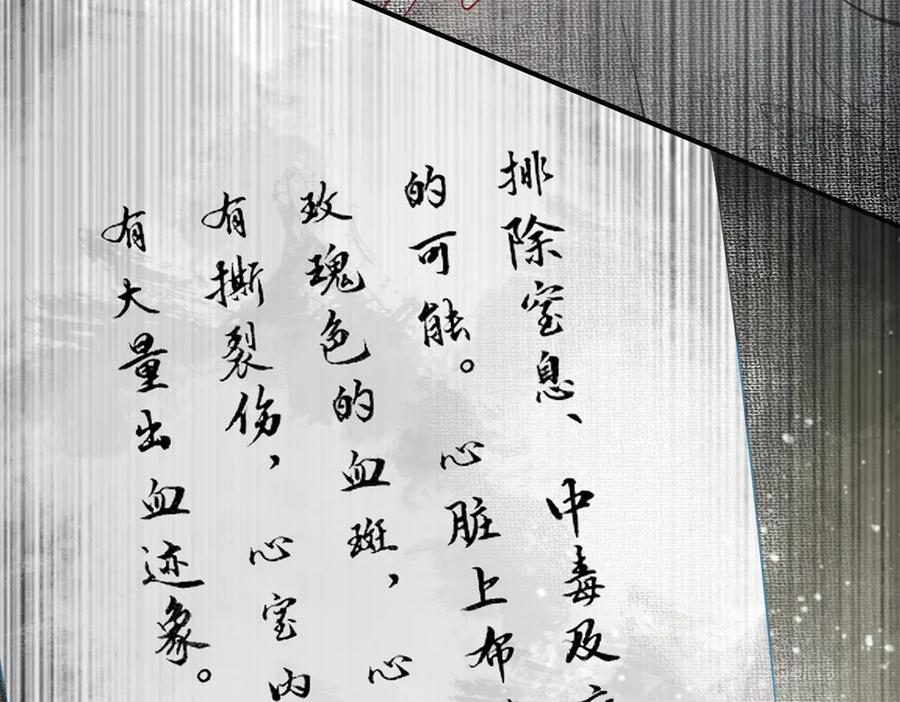 排除窒息、中毒及
的可能。心脏上布
玫瑰色的血斑，心
有撕裂伤，心室内
有大量出血迹象。